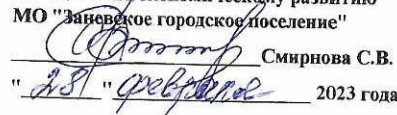 развитию
МО "Заневское городское поселение"
Смирнова С.В.
"28" февраля 2023 года